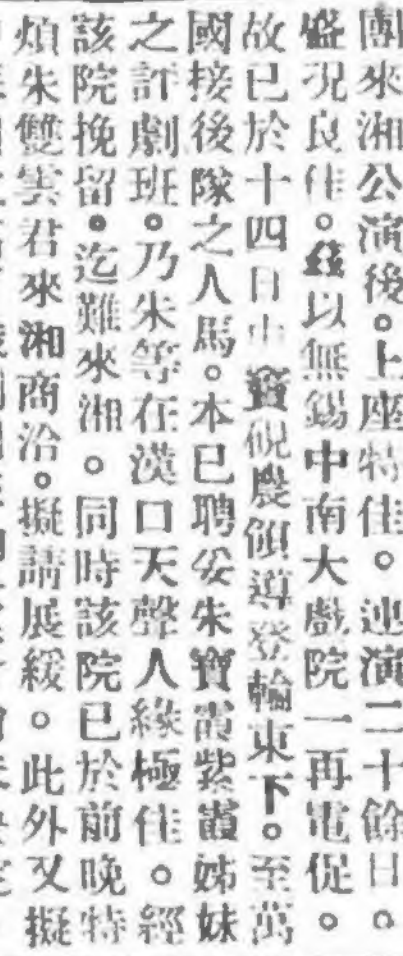 團來湘公演後。上座特佳。連演二十餘日。
盛況良佳。茲以無錫中南大戲院一再電促。
故已於十四日由竇硯農領導登輪東下。至萬
國接後隊之人馬。本已聘妥朱寶霞紫霞姊妹
之評劇班。乃朱等在漢口天聲人緣極佳。經
該院挽留。迄難來湘。同時該院已於前晚特
煩朱雙雲君來湘商洽。擬請展緩。此外又擬